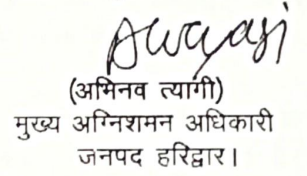 (अभिनव त्यागी)
मुख्य अग्निशमन अधिकारी
जनपद हरिद्वार।